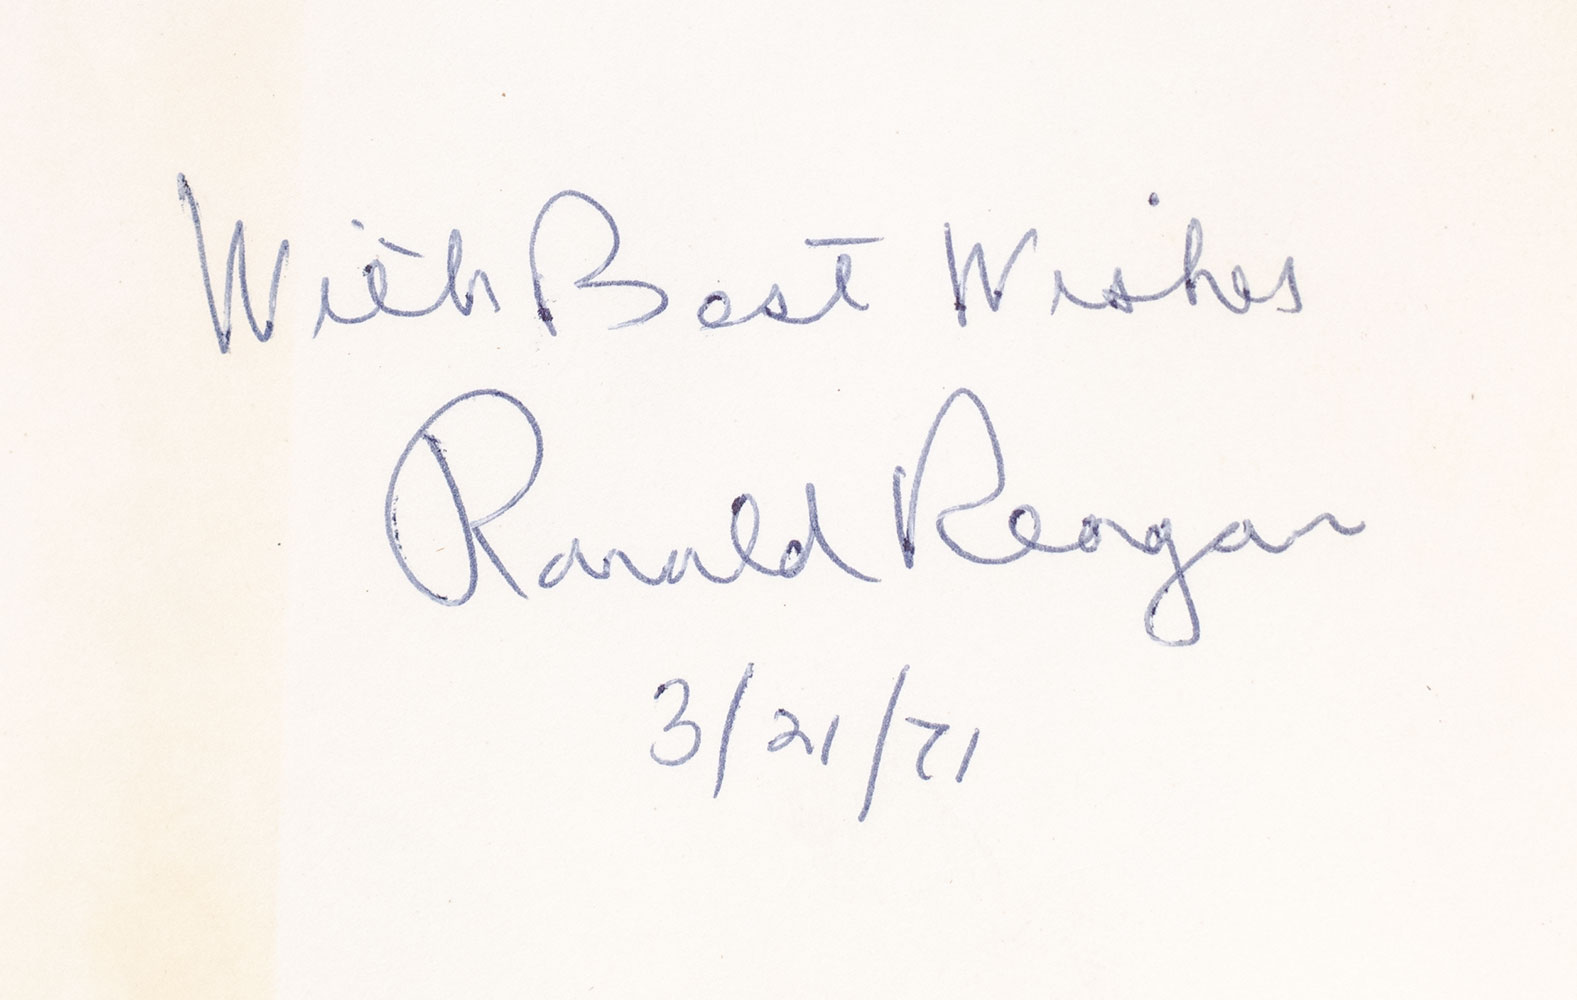 With Best Wishes
Ronald Reagan
3/21/71